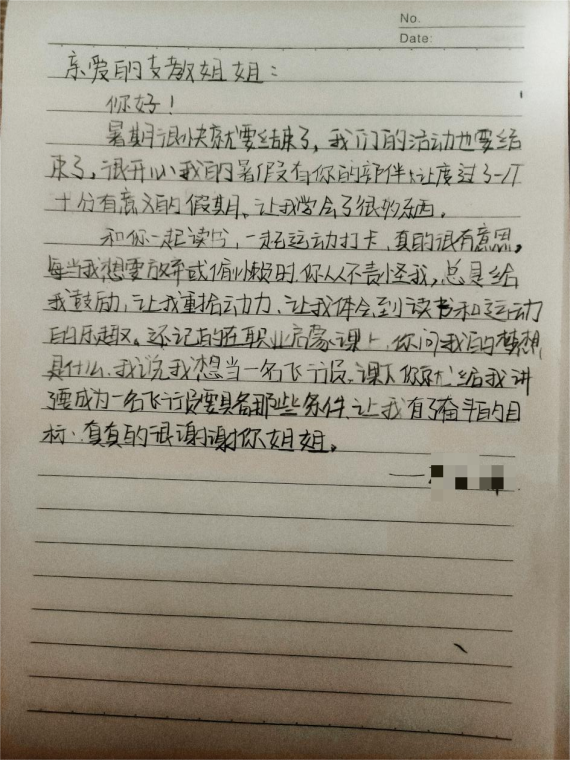 No.
Date:
亲爱的支教姐姐：
你好！
暑期很快就要结束了，我们的活动也要结
束了，很开心我的暑假有你的陪伴，让度过了一个
十分有意义的假期。让我学会了很多东西。
和你一起读书，一起运动打卡，真的很有意思。
每当我想要放弃或偷懒时，你从不责怪我，总是给
我鼓励，让我重拾动力、让我体会到读书和运动
的乐趣。还记的在职业启蒙课上，你问我的梦想
是什么，我说我想当一名飞行员，课下你就给我讲
了要成为一名飞行员要具备那些条件，让我有了奋斗的目
标，真真的很谢谢你姐姐。